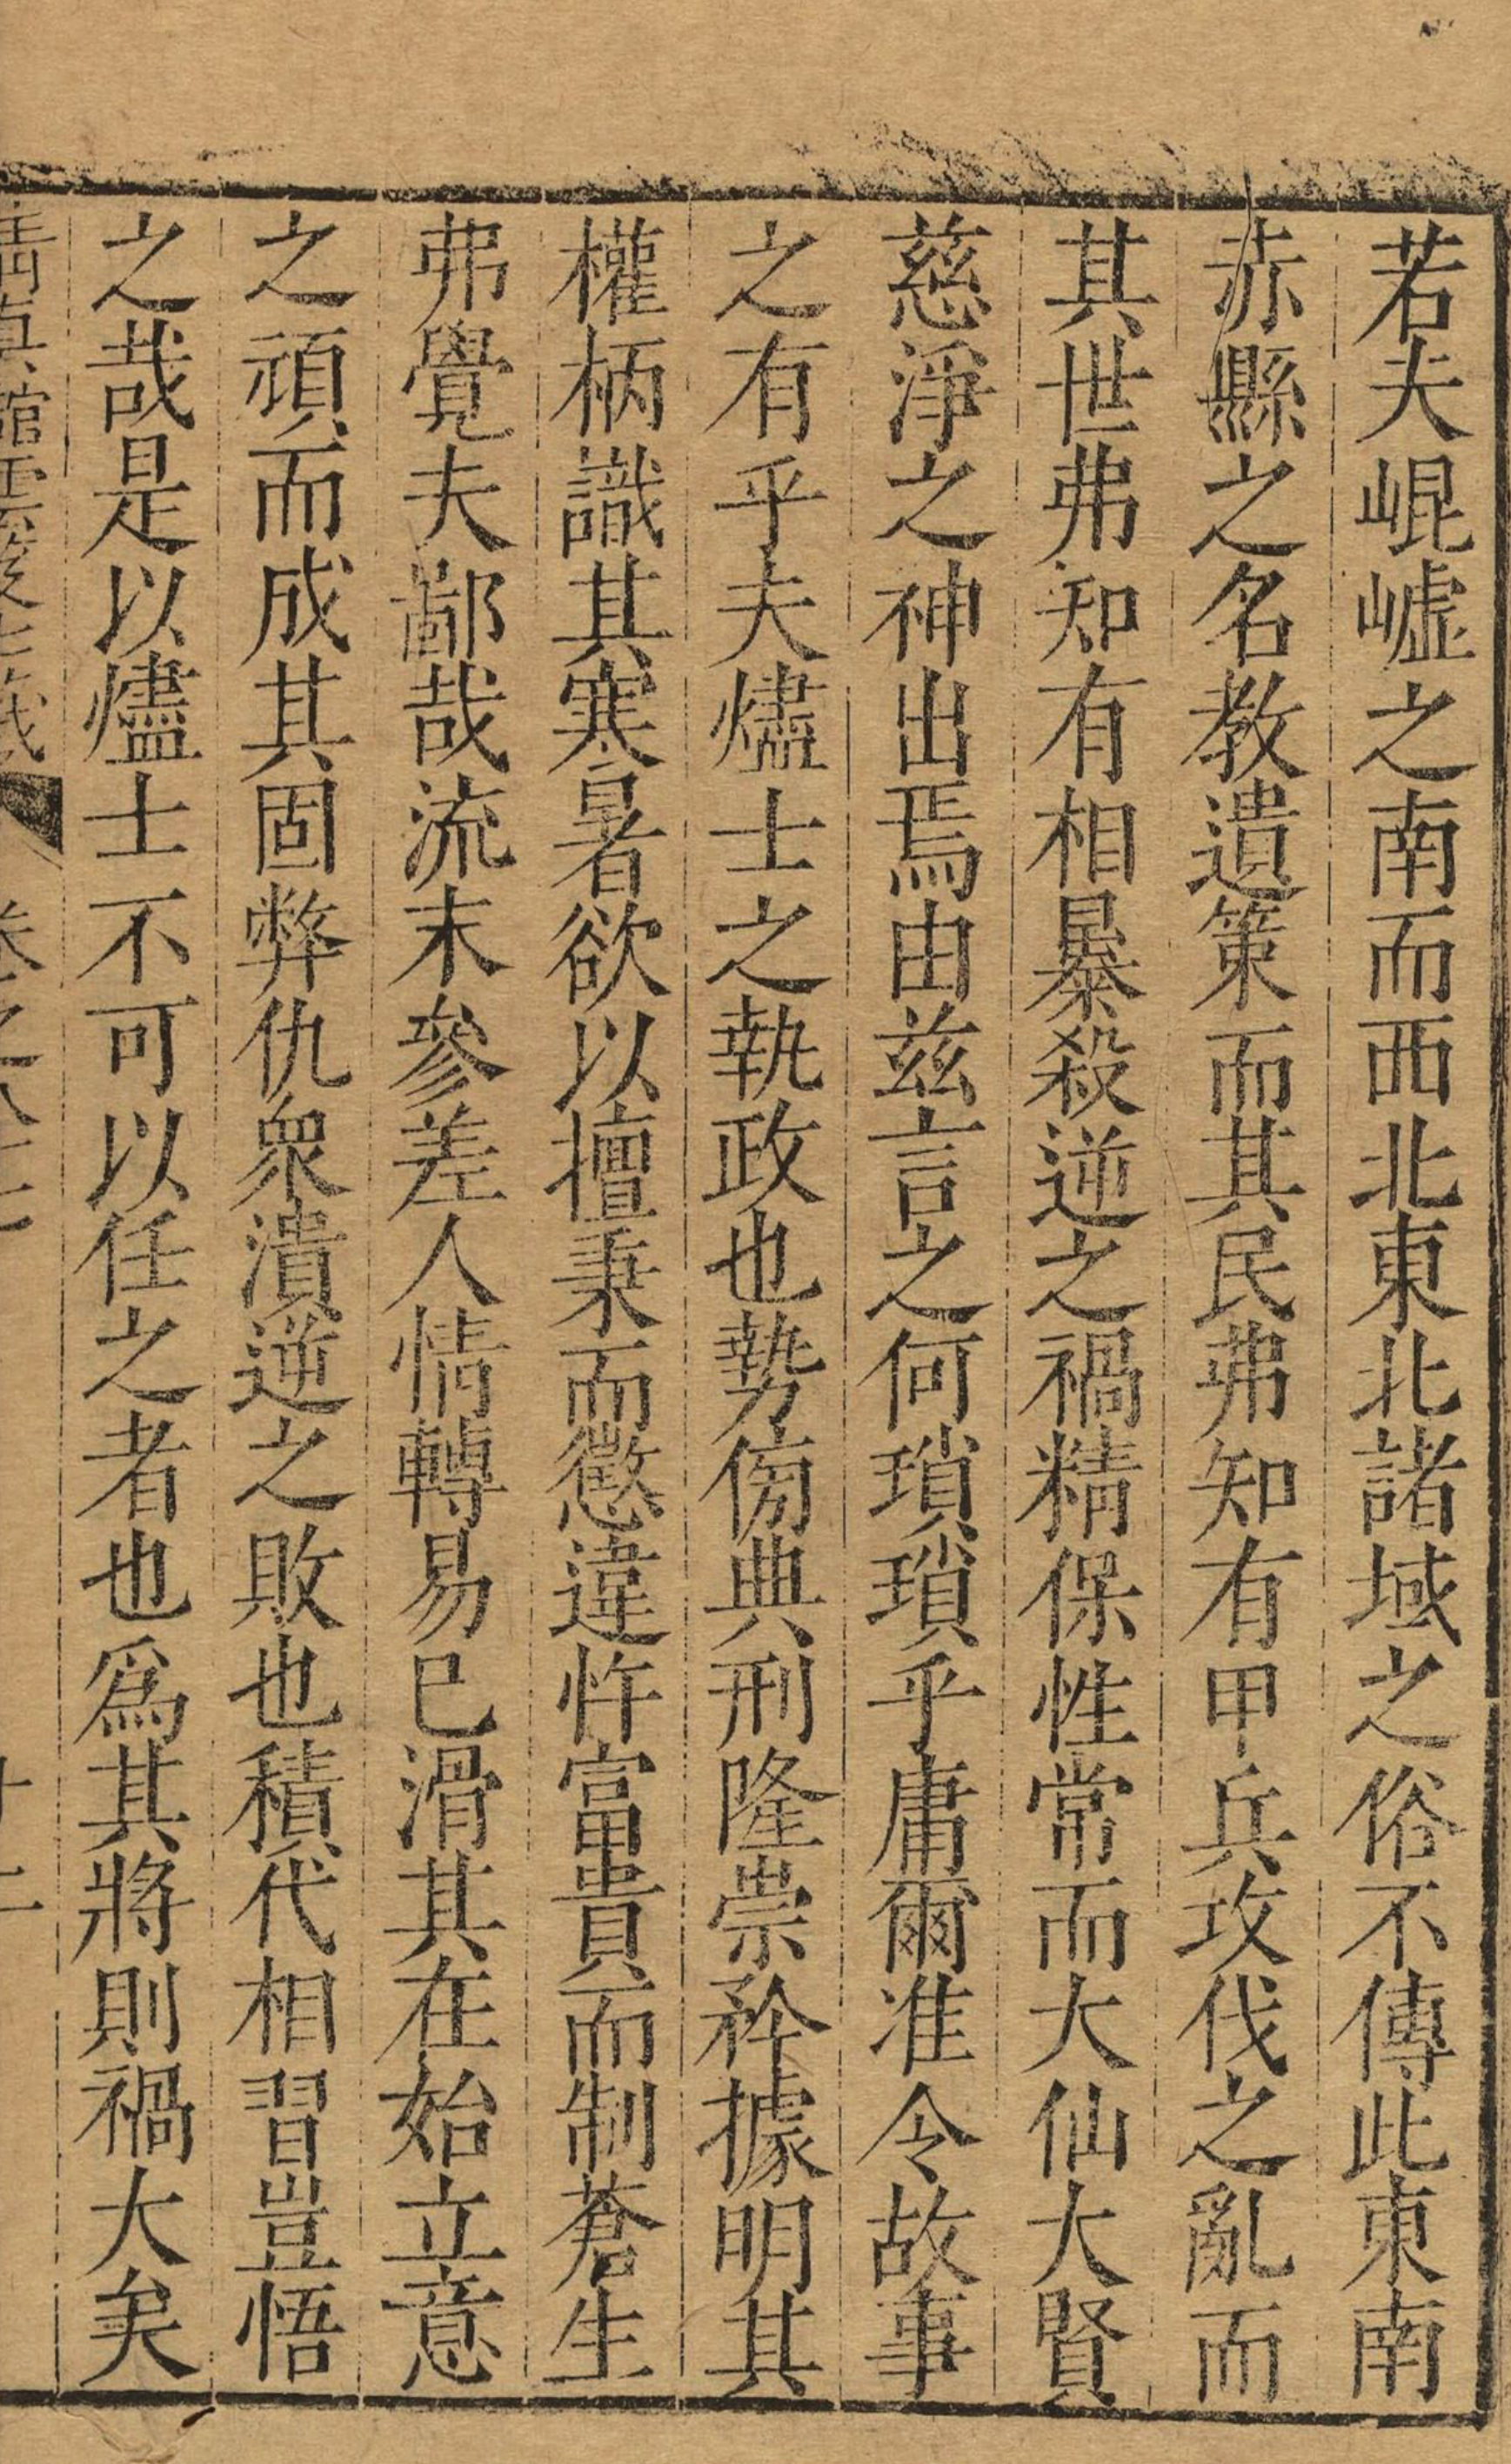 若夫崐嶟之南而西北東北諸域之俗不傳此東南
赤縣之名教遺策而其民弗知有甲兵攻伐之亂而
其世弗知有相暴殺逆之禍精保性常而大仙大賢
慈淨之神出焉由兹言之何瑣瑣乎庸爾准令故事
之有乎夫燼士之執政也勢傍典刑隆崇矜據明其
權柄識其寒暑欲以擅秉而懲違忤富貴而制蒼生
弗覺夫鄙哉流末參差人情轉易巳滑其在始立意
之頑而成其固弊仇衆潰逆之敗也積代相習豈悟
之哉是以燼士不可以任之者也爲其將則禍大矣